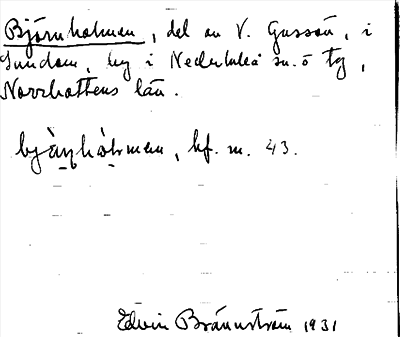 Björnholmen, del av V. Gussön, i
Sundom, by i Nederluleå sn. o tg,
Norrbottens län.
bjὰn̥hòl̥men, hf. m. 43.
Edvin Brännström 1931